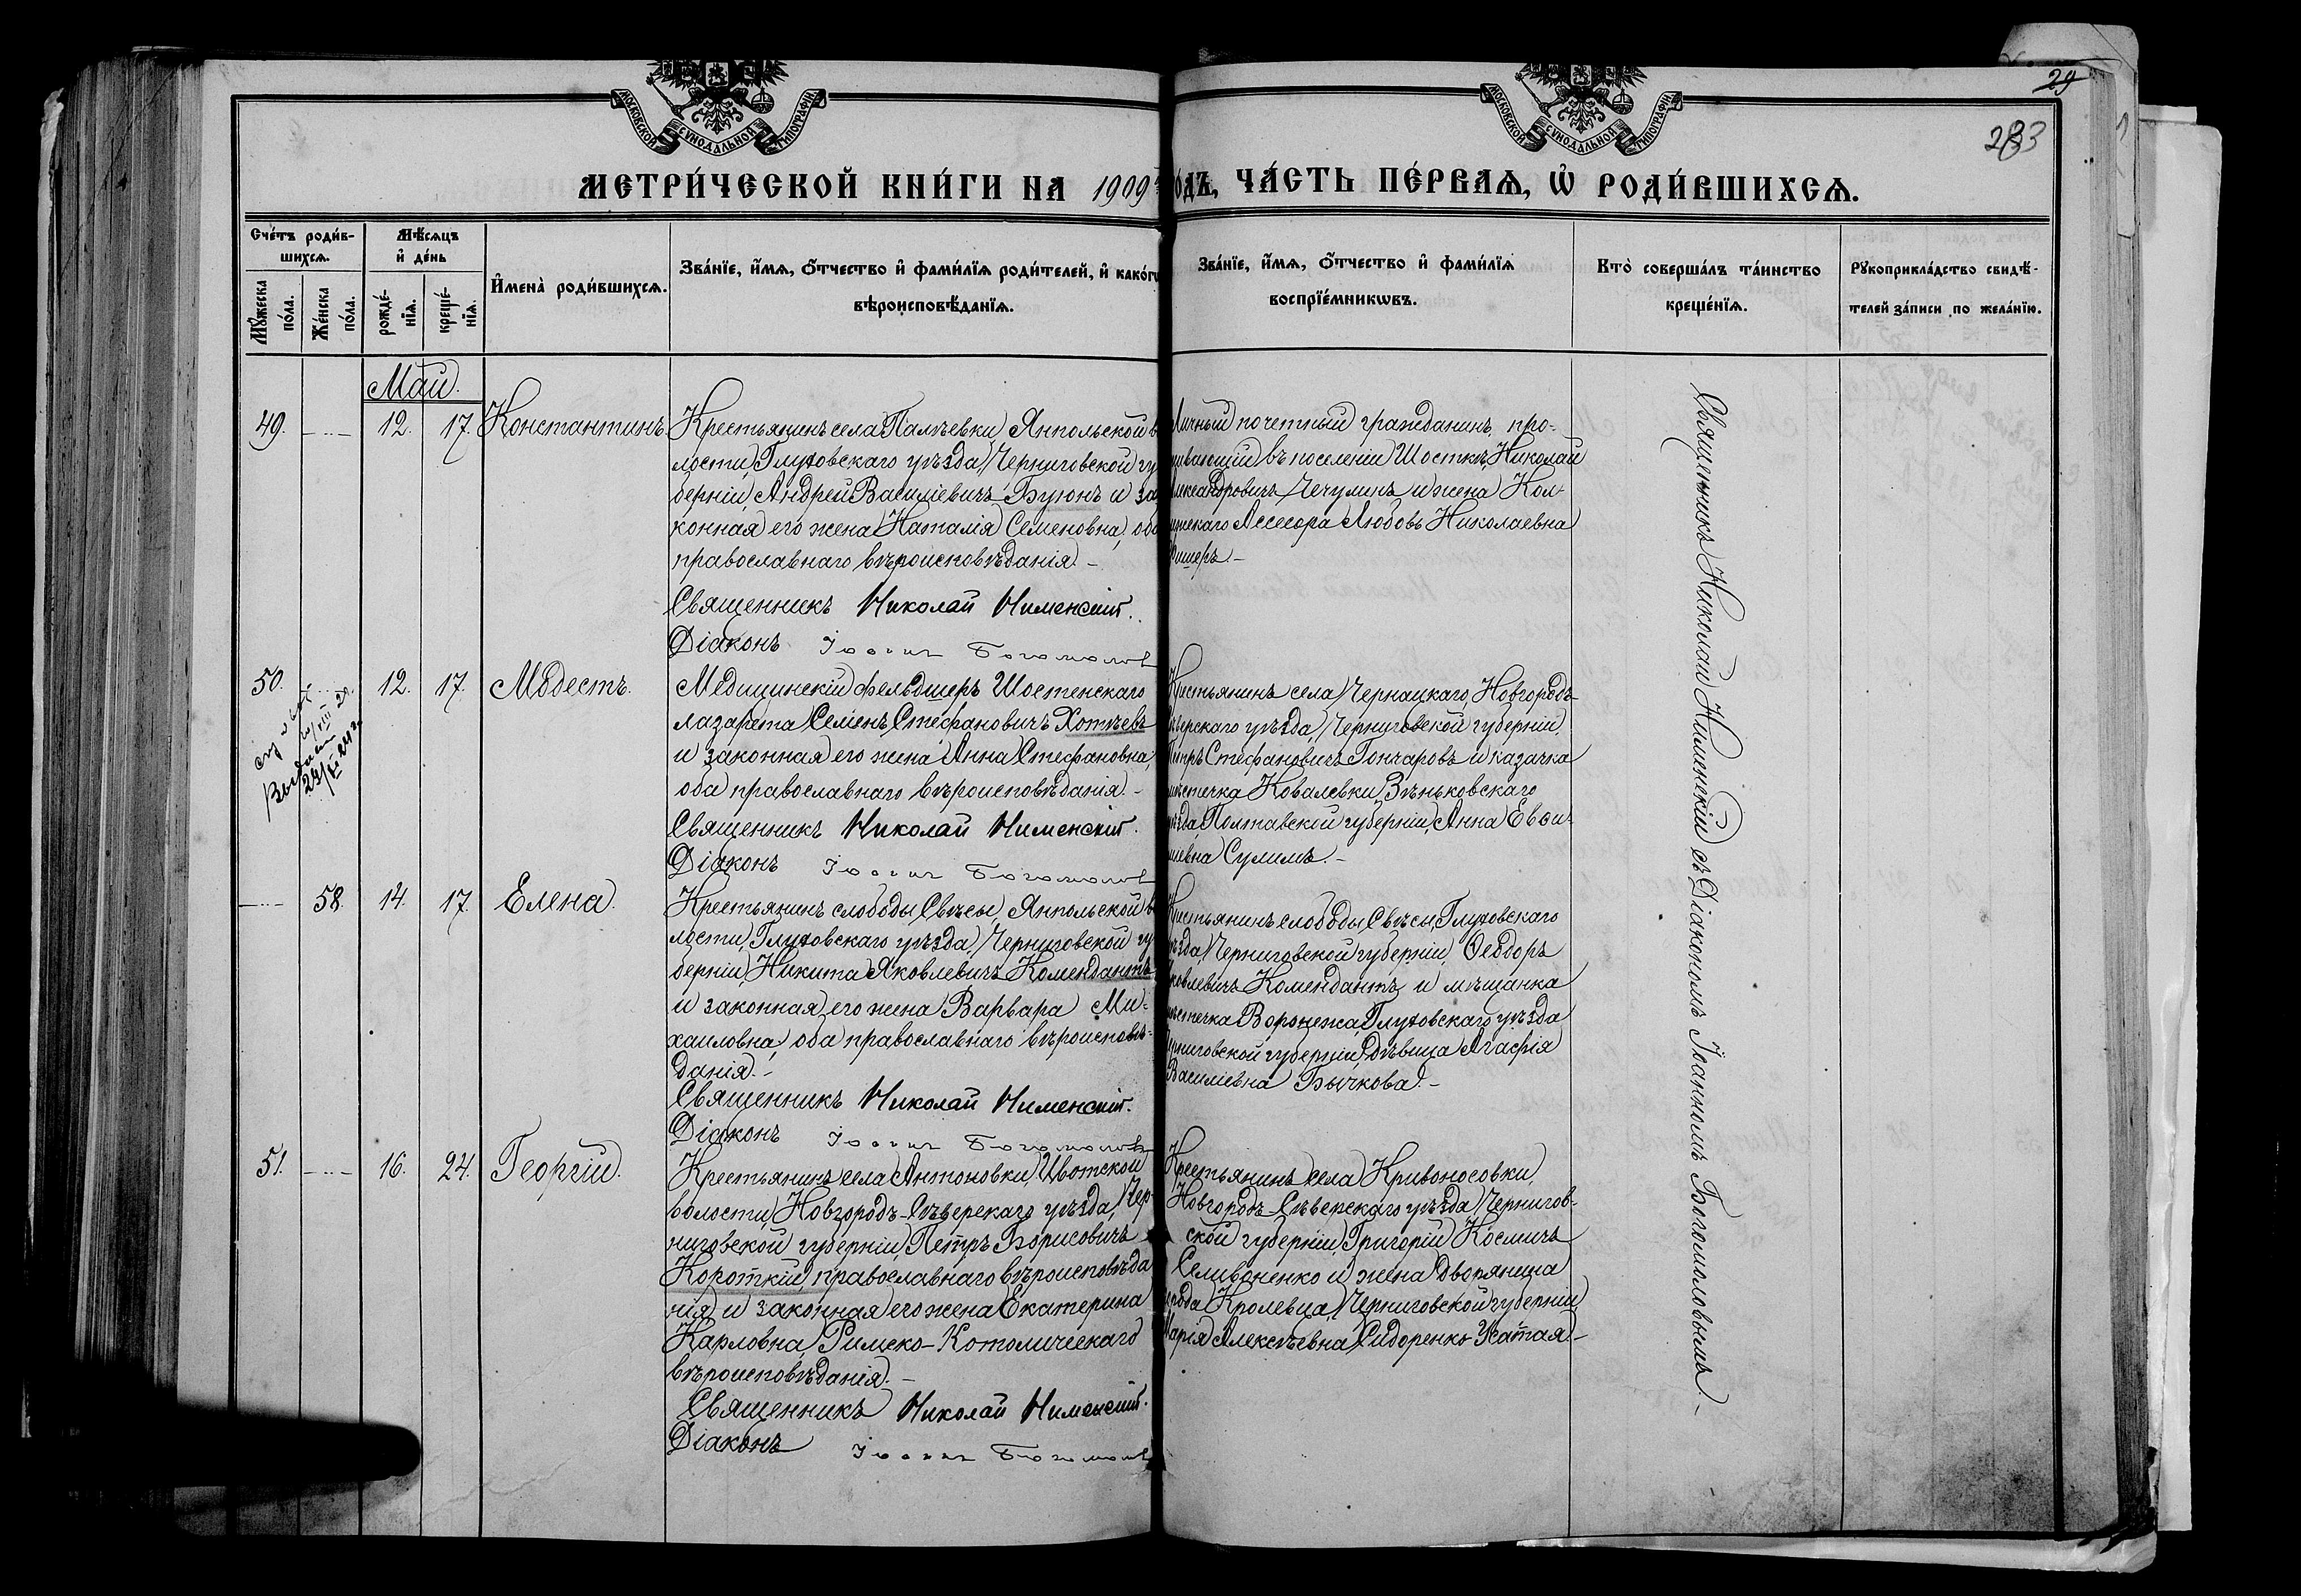 29
283
МОСКОВСКОЙ СѴНОДАЛЬНОЙ ТИПОГРАФІИ
МОСКОВСКОЙ СѴНОДАЛЬНОЙ ТИПОГРАФІИ
МЕТРИ́ЧЕСКОЙ КНИ́ГИ НА 1909
ОДЪ, ЧА́СТЬ ПЕ́РВАѦ, Ѡ҆ РОДИ́ВШИХСѦ.
Сче́тъ роди́в-
шихсѧ.
Мѣ́сѧцъ
и҆ де́нь
Мꙋ́жеска
по́ла.
Же́нска
по́ла.
рожде́-
нїѧ.
креще́-
нїѧ.
И҆мена̀ роди́вшихсѧ.
Зва́нїе, и҆́мѧ, ѻ҆́тчество и҆ фами́лїѧ роди́телей, и҆ како́гѡ
вѣроисповѣ́данїѧ.
Зва́нїе, и҆́мѧ, ѻ҆́тчество и҆ фами́лїѧ
воспрїе́мникѡвъ.
Кто̀ соверша́лъ та́инство
креще́нїѧ.
Рꙋкоприкла́дство свидѣ́-
телей за́писи по жела́нїю.
Май.
49.
12. 17.
Константинъ.
Крестьянинъ села Палѣевки, Янпольской во
лости, Глуховскаго уѣзда, Черниговской гу
берніи, Андрей Василіевичъ Бугонъ и за
конная его жена Наталія Семеновна, оба
православнаго вѣроисповѣданія.–
Священникъ Николай Нименскій.
Діаконъ Іоаннъ Богомолов
Личный почетный гражданинъ, про-
живающій въ поселеніи Шосткѣ, Николай
Александровичъ Чечулинъ и жена Кол-
лежскаго Ассесора Любовь Николаевна
Фишеръ.–
50.
12. 17.
Модестъ.
Медицинскій фельдшеръ Шостенскаго
лазарета Семенъ Стефановичъ Хотѣевъ
и законная его жена Анна Стефановна,
оба православнаго вѣроисповѣданія.–
Священникъ Николай Нименскій.
Діаконъ Іоаннъ Богомолов
Крестьянинъ села Чернацкаго, Новгородъ-
Сѣверскаго уѣзда, Черниговской губерніи,
Петръ Стефановичъ Гончаровъ и казачка
мѣстечка Ковалевки, Зѣньковскаго
уѣзда, Полтавской губерніи, Анна Евси-
міевна Сулима.–
58.
14. 17.
Елена.
Крестьянинъ слободы Свѣсы, Янпольской во
лости, Глуховскаго уѣзда, Черниговской гу
берніи, Никита Яковлевичъ Комендантъ
и законная его жена Варвара Ми-
хаиловна, оба православнаго вѣроисповѣ-
данія.–
Священникъ Николай Нименскій.
Діаконъ Іоаннъ Богомолов
Крестьянинъ слободы Свѣсы, Глуховскаго
уѣзда, Черниговской губерніи, Ѳеодоръ
Яковлевичъ Комендантъ и мѣщанка
мѣстечка Воронежа, Глуховскаго уѣзда
Черниговской губерніи, дѣвица Агафія
Василіевна Бычкова.–
51.
16. 24.
Георгій.
Крестьянинъ села Антоновки, Ивотской
волости, Новгородъ-Сѣверскаго уѣзда, Чер-
ниговской губерніи, Петръ Борисовичъ
Короткій, православнаго вѣроисповѣда
нія и законная его жена Екатерина
Карловна, Римско-Католическаго
вѣроисповѣданія.–
Священникъ Николай Нименскій.
Діаконъ Іоаннъ Богомолов
Крестьянинъ села Кривоносовки,
Новгородъ-Сѣверскаго уѣзда, Чернигов-
ской губерніи, Григорій Космичъ
Селивоненко и жена дворянина
города Кролевца, Черниговской губерніи,
Марія Алексѣевна Сидоренко-Усатая.–
Священникъ Николай Нименскій съ Діакономъ Іоанномъ Богомоловымъ.–